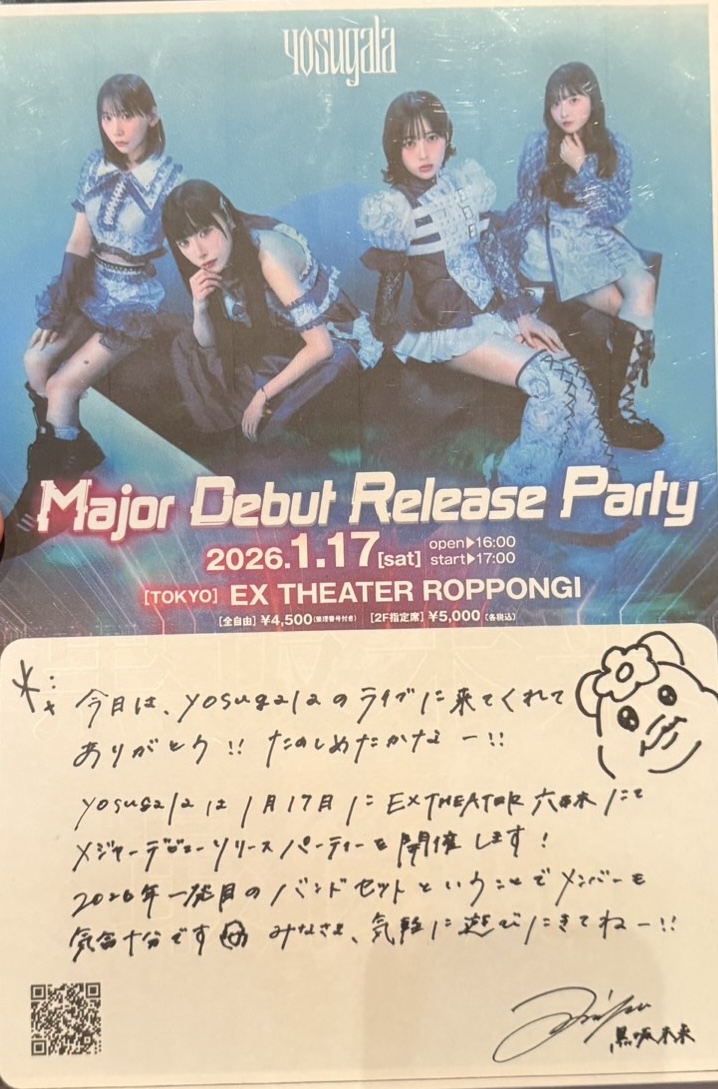 yosugala
Major Debut Release Party
2026.1.17[sat] open▶16:00
start▶17:00
[TOKYO] EX THEATER ROPPONGI
[全自由] ¥4,500(整理番号付き) [2F指定席] ¥5,000(各税込)
今日は、yosugalaのライブに来てくれて
ありがとう!! たのしめたかなー!!
yosugalaは1月17日にEX THEATER 六本木にて
メジャーデビューリリースパーティーを開催します!
2026年一発目のバンドセットということでメンバーも
気合十分です みなさま、気軽に遊びにきてねー!!
黒坂未来